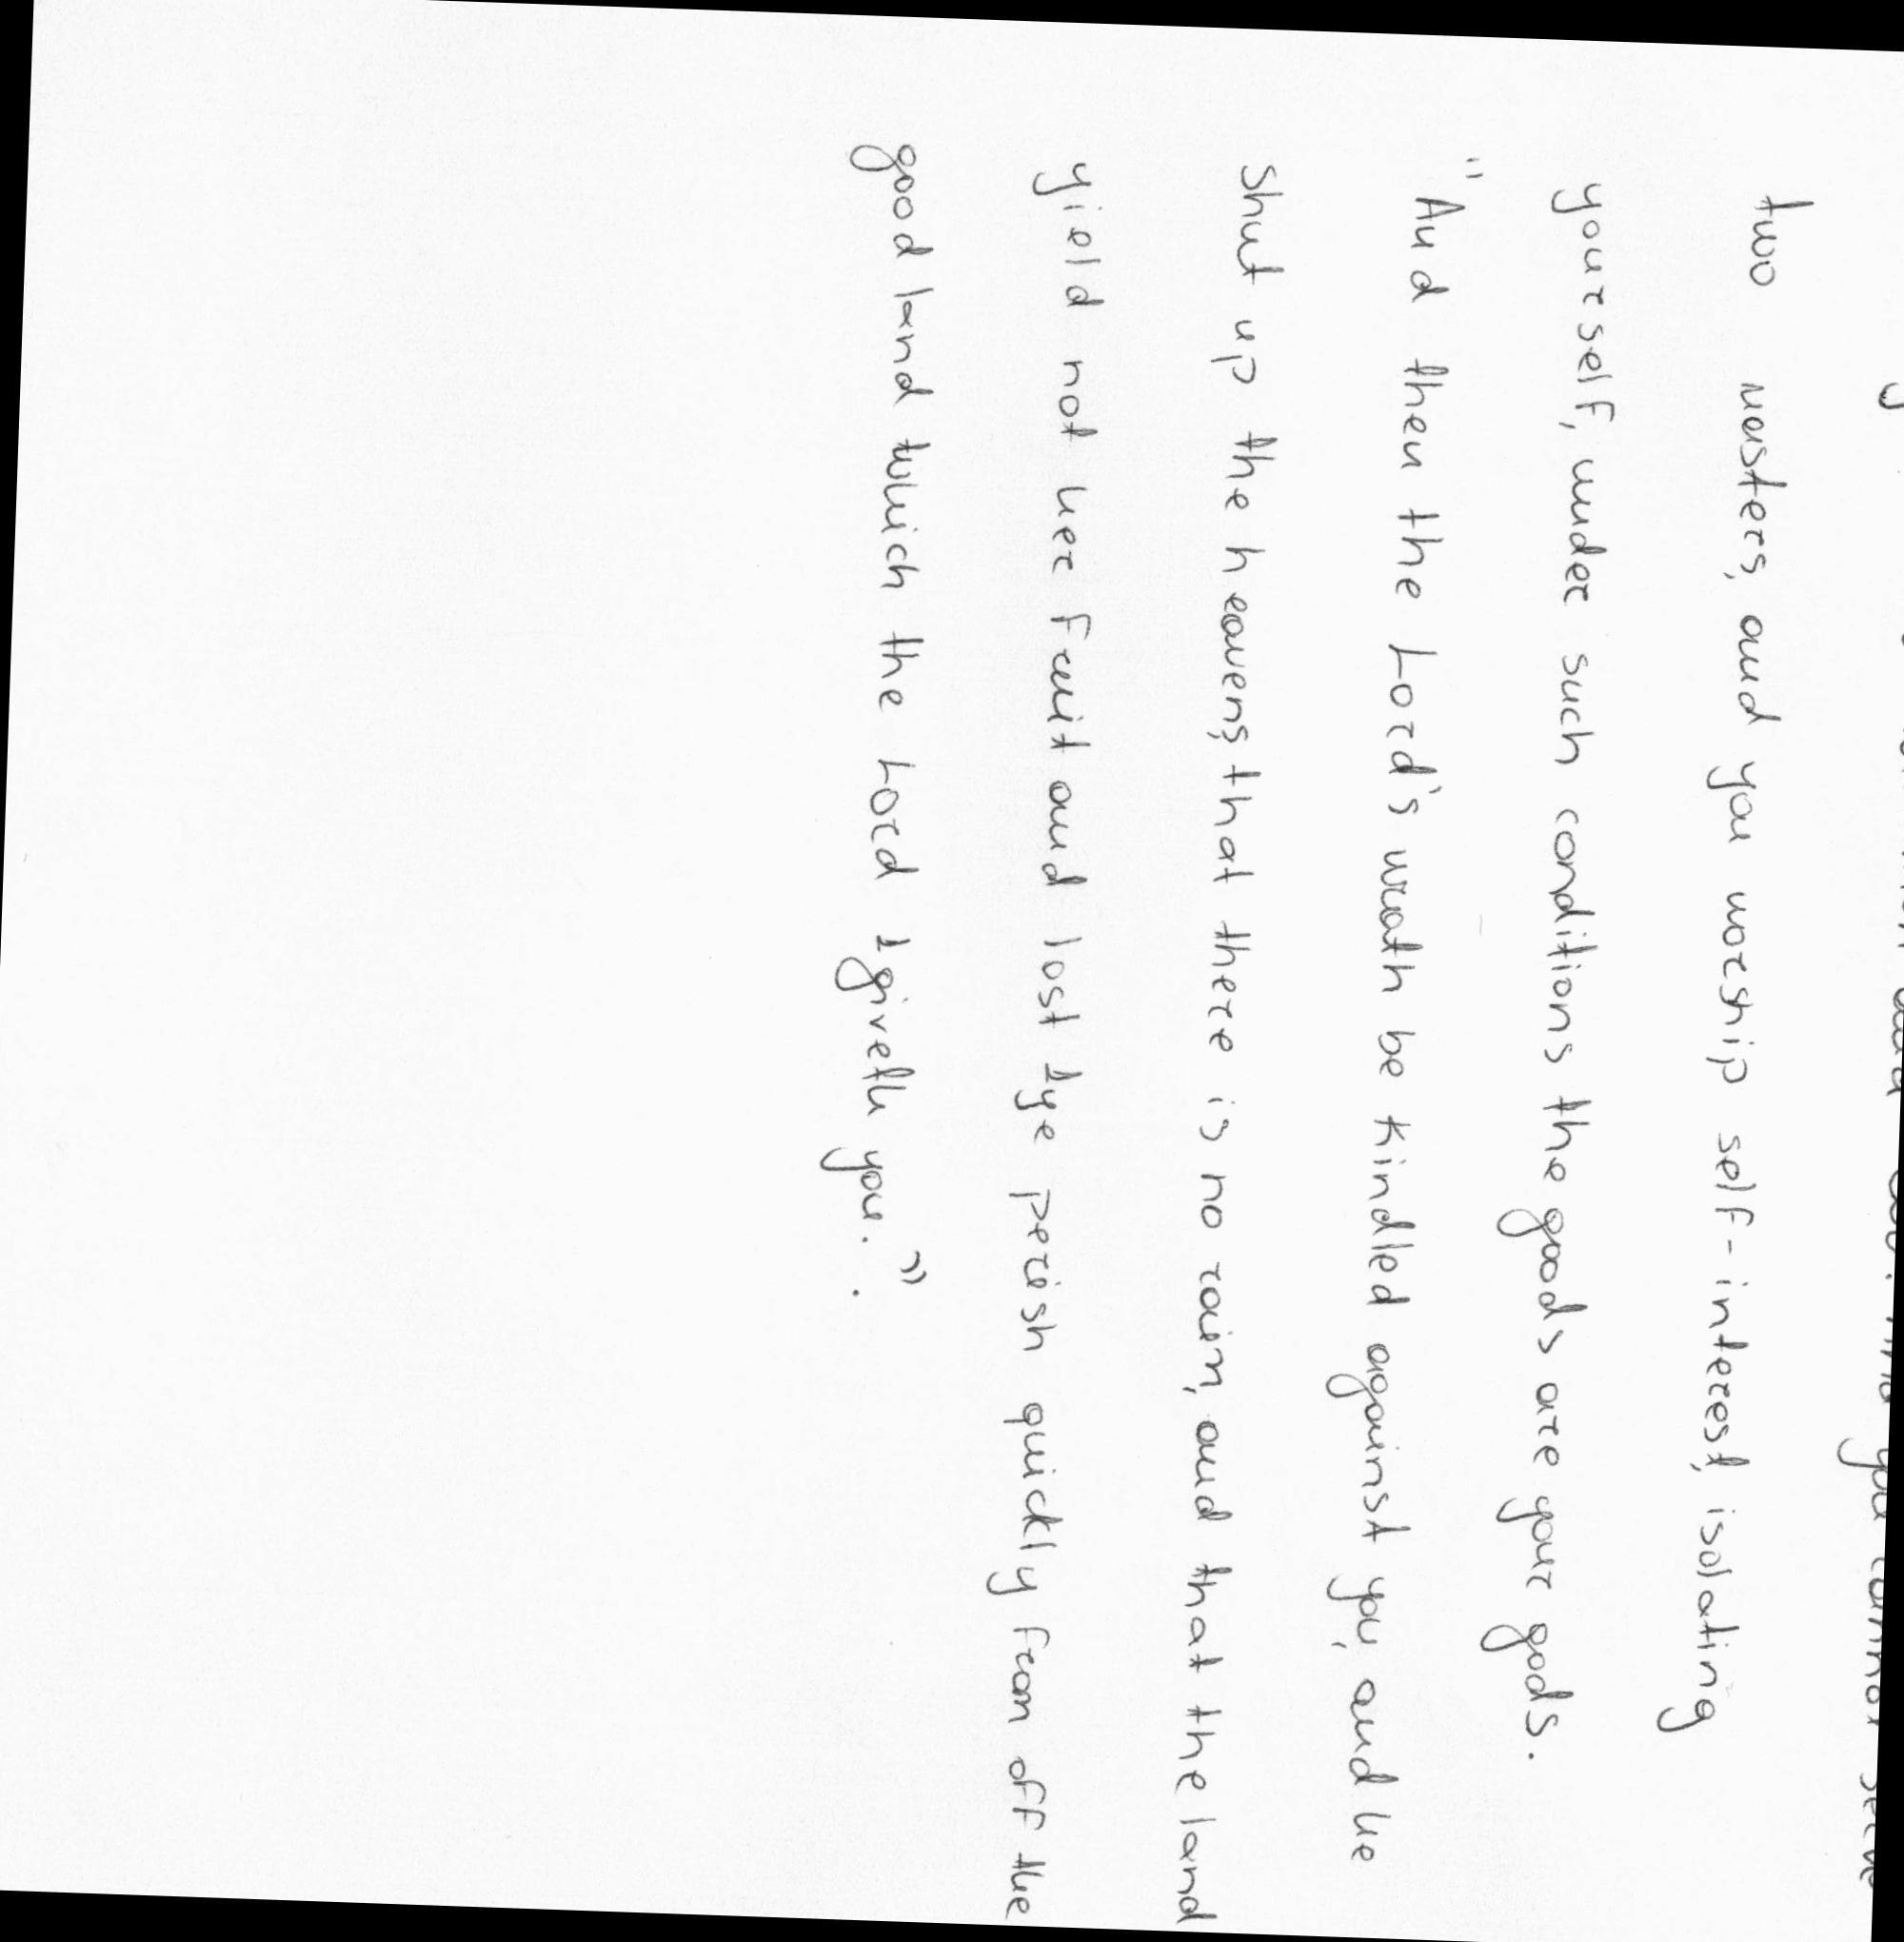 you cannot serve
two masters, and you worship self-interest, isolating
yourself, under such conditions the goods are your gods.
"And then the Lord's wrath be kindled against you, and he
Shut up the heavens, that there is no rain, and that the land
yield not her fruit and lost 1ye perish quickly from off the
good land which the Lord 1giveth you.".